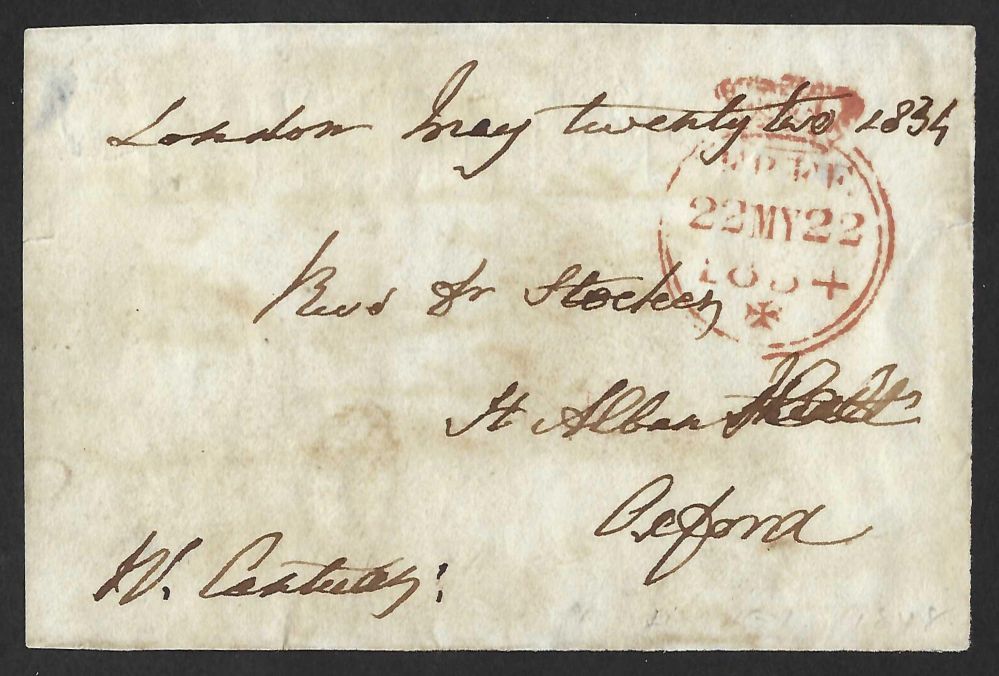 London May twenty two 1834
FREE
22MY22
1834
Revd Dr Stocker
St Alban Hall
Oxford
W. Cantuar: